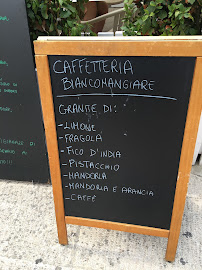 CAFFETTERIA
BIANCOMANGIARE
GRANITE DI:
- LIMONE
- FRAGOLA
- FICO D'INDIA
- PISTACCHIO
- MANDORLA
- MANDORLA E ARANCIA
- CAFFÉ